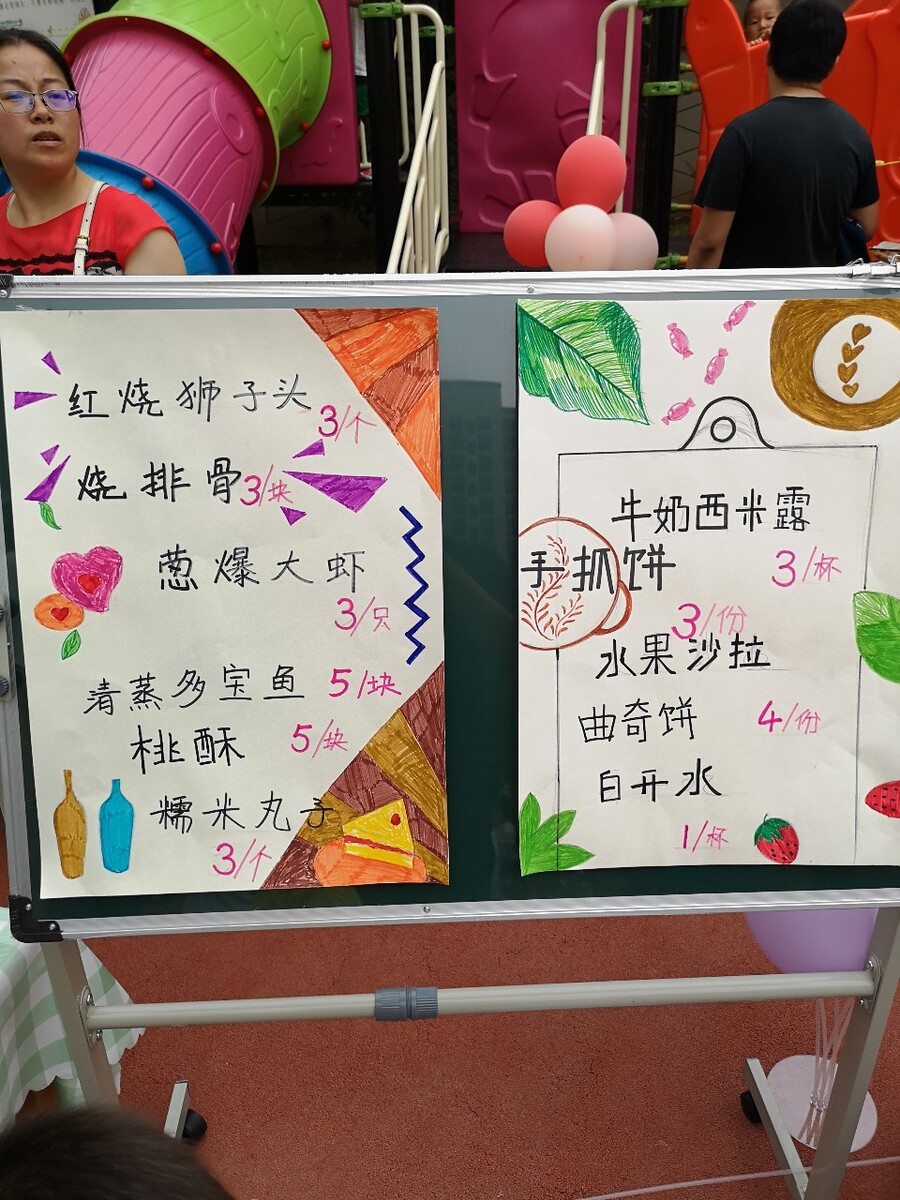 红烧狮子头
3/个
烧排骨3/块
葱爆大虾
3/只
清蒸多宝鱼 5/块
桃酥 5/块
糯米丸子
3/个
牛奶西米露
3/杯
手抓饼
3/份
水果沙拉
曲奇饼 4/份
白开水
1/杯